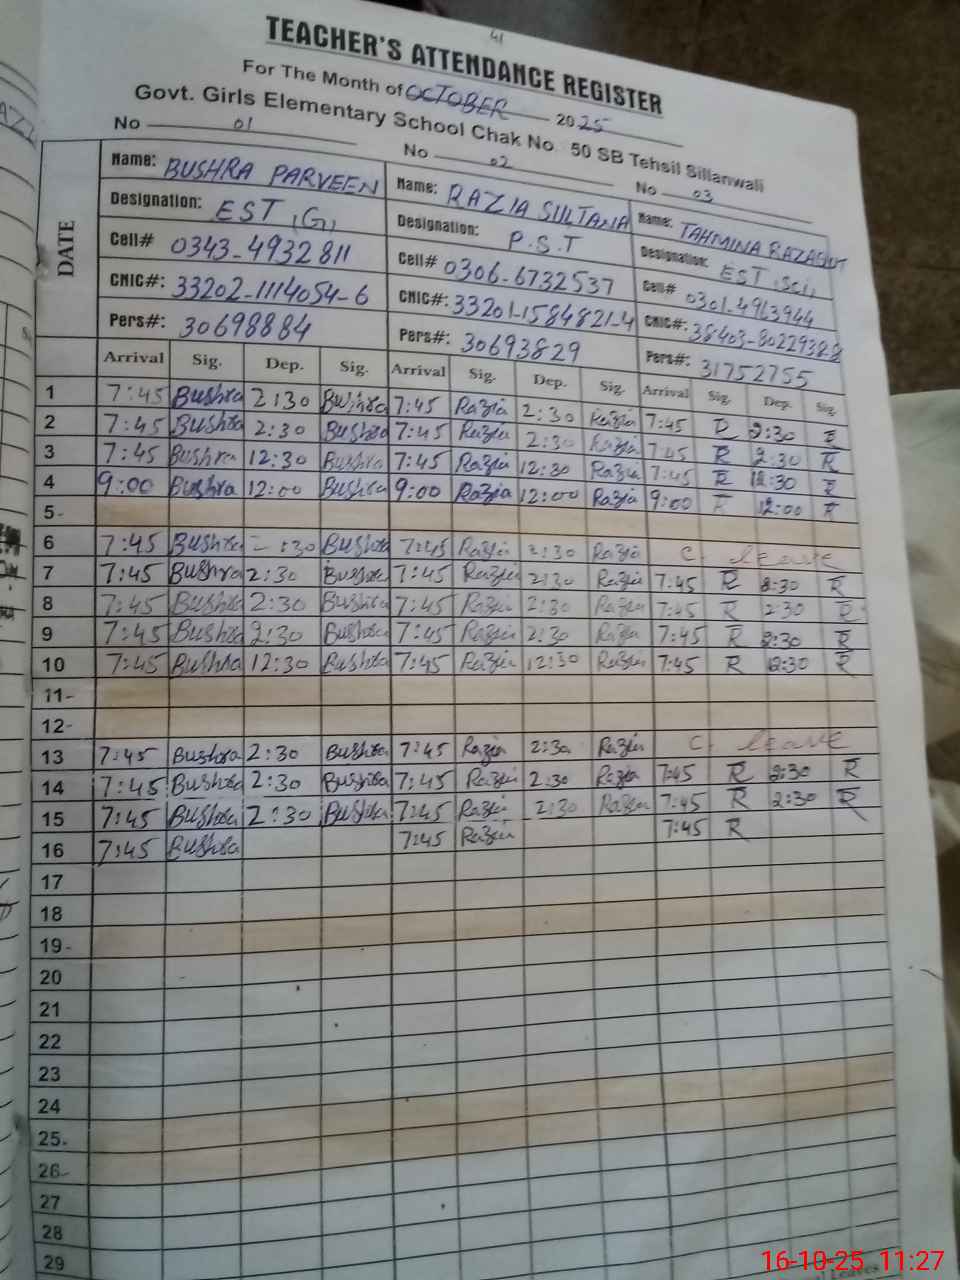 41
TEACHER'S ATTENDANCE REGISTER
For The Month of OCTOBER 2025
Govt. Girls Elementary School Chak No. 50 SB Tehsil Sillanwali
No 01 No 02 No 03
DATE
Name: BUSHRA PARVEEN Name: RAZIA SULTANA Name: TAHMINA
Designation: EST (G) Designation: P.S.T Designation: EST (Sci)
Cell# 0343-4932811 Cell# 0306-6732537 Cell# 0301-4913944
CNIC#: 33202-1114054-6 CNIC#: 33201-1584821-4 CNIC#:
Pers#: 30698884 Pers#: 30693829 Pers#: 31752755
Arrival Sig. Dep. Sig. Arrival Sig. Dep. Sig. Arrival Sig. Dep. Sig.
1 7:45 Bushra 2:30 Bushra 7:45 Razia 2:30 Razia 7:45 R 2:30 R
2 7:45 Bushra 2:30 Bushra 7:45 Razia 2:30 Razia 7:45 R 2:30 R
3 7:45 Bushra 12:30 Bushra 7:45 Razia 12:30 Razia 7:45 R 12:30 R
4 9:00 Bushra 12:00 Bushra 9:00 Razia 12:00 Razia 9:00 R 12:00 R
5-
6 7:45 Bushra 2:30 Bushra 7:45 Razia 2:30 Razia C. leave
7 7:45 Bushra 2:30 Bushra 7:45 Razia 2:30 Razia 7:45 R 2:30 R
8 7:45 Bushra 2:30 Bushra 7:45 Razia 2:30 Razia 7:45 R 2:30 R
9 7:45 Bushra 2:30 Bushra 7:45 Razia 2:30 Razia 7:45 R 2:30 R
10 7:45 Bushra 12:30 Bushra 7:45 Razia 12:30 Razia 7:45 R 12:30 R
11-
12-
13 7:45 Bushra 2:30 Bushra 7:45 Razia 2:30 Razia C. leave
14 7:45 Bushra 2:30 Bushra 7:45 Razia 2:30 Razia 7:45 R 2:30 R
15 7:45 Bushra 2:30 Bushra 7:45 Razia 2:30 Razia 7:45 R 2:30 R
16 7:45 Bushra 7:45 Razia 7:45 R
17
18
19-
20
21
22
23
24
25.
26-
27
28
29
16-10-25 11:27